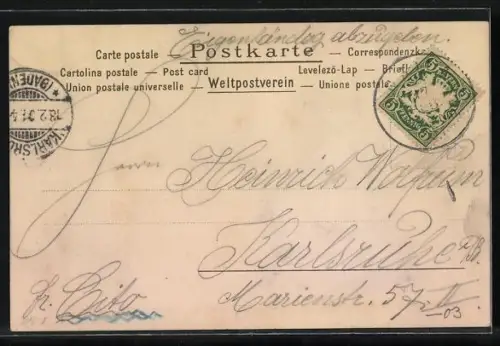 Eigenhändig abzugeben.
Carte postale — Postkarte — Correspondenzka
Cartolina postale — Post card Levelező-Lap — Briefk
Union postale universelle Weltpostverein — Unione postale
(BADEN)
18.2.01.4
KARLSRU
5 5 5 5
Herrn
Heinrich
Karlsruhe i/B.
Marienstr. 57 II
03